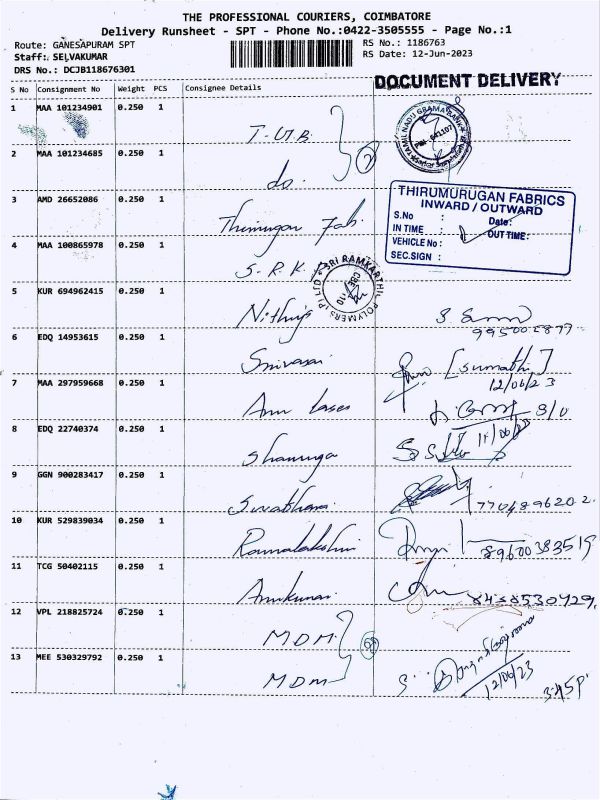 THE PROFESSIONAL COURIERS, COIMBATORE
Delivery Runsheet - SPT - Phone No.:0422-3505555 - Page No.:1
Route: GANESAPURAM SPT
RS No.: 1186763
Staff: SELVAKUMAR
RS Date: 12-Jun-2023
DRS No.: DCJB118676301
DOCUMENT DELIVERY
S No Consignment No Weight PCS Consignee Details
1 MAA 101234901 0.250 1
TAMIL NADU GRAMA BANK
T.U.B. 2
2 MAA 101234685 0.250 1
do.
3 AMD 26652086 0.250 1
THIRUMURUGAN FABRICS
INWARD / OUTWARD
S.No : Date:
IN TIME : OUT TIME:
VEHICLE No :
SEC.SIGN :
4 MAA 100865978 0.250 1
S.R.K
SRI RAMKARTHIC POLYMERS (P) LTD
5 KUR 694962415 0.250 1
6 EDQ 14953615 0.250 1
Srinivasan
[Sumathi]
12/06/23
7 MAA 297959668 0.250 1
8 EDQ 22740374 0.250 1
Shanmuga
9 GGN 900283417 0.250 1
7704896202.
10 KUR 529839034 0.250 1
Ramalakshmi
89600383519
11 TCG 50402115 0.250 1
Arunkumar.
8438530429.
12 VPL 218825724 0.250 1
MDM 2
13 MEE 530329792 0.250 1
MDM
12/06/23
3.45P